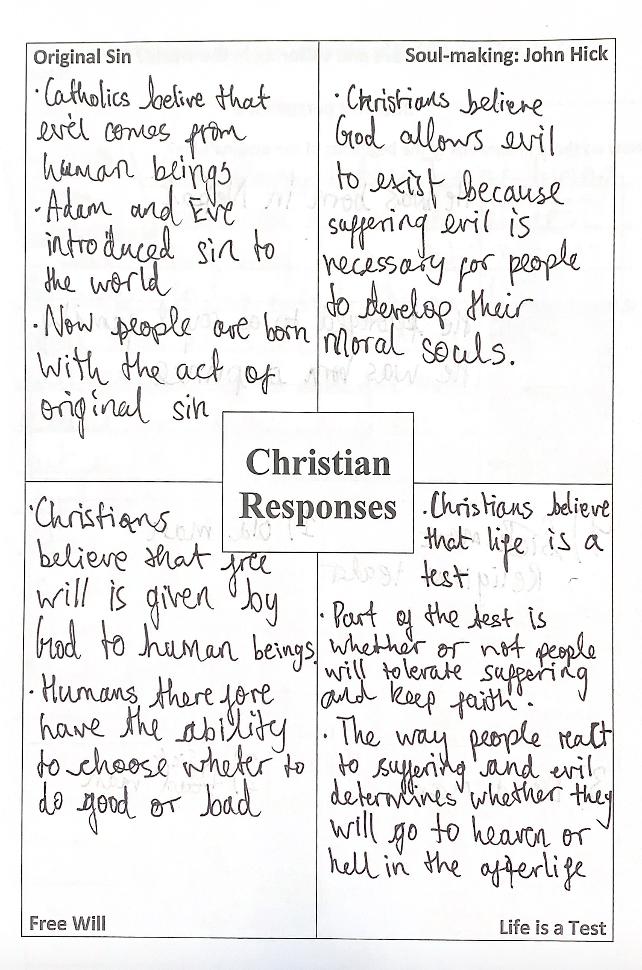 Original Sin
·Catholics belive that
evil comes from
human beings
·Adam and Eve
introduced sin to
the world
·Now people are born
with the act of
original sin
Soul-making: John Hick
·Christians believe
God allows evil
to exist because
suffering evil is
necessary for people
to develop their
moral souls.
Christian
Responses
·Christians
believe that free
will is given by
God to human beings
·Humans therefore
have the ability
to choose wheter to
do good or bad
Free Will
·Christians believe
that life is a
test
·Part of the test is
whether or not people
will tolerate suffering
and keep faith.
·The way people react
to suffering and evil
determines whether they
will go to heaven or
hell in the afterlife
Life is a Test